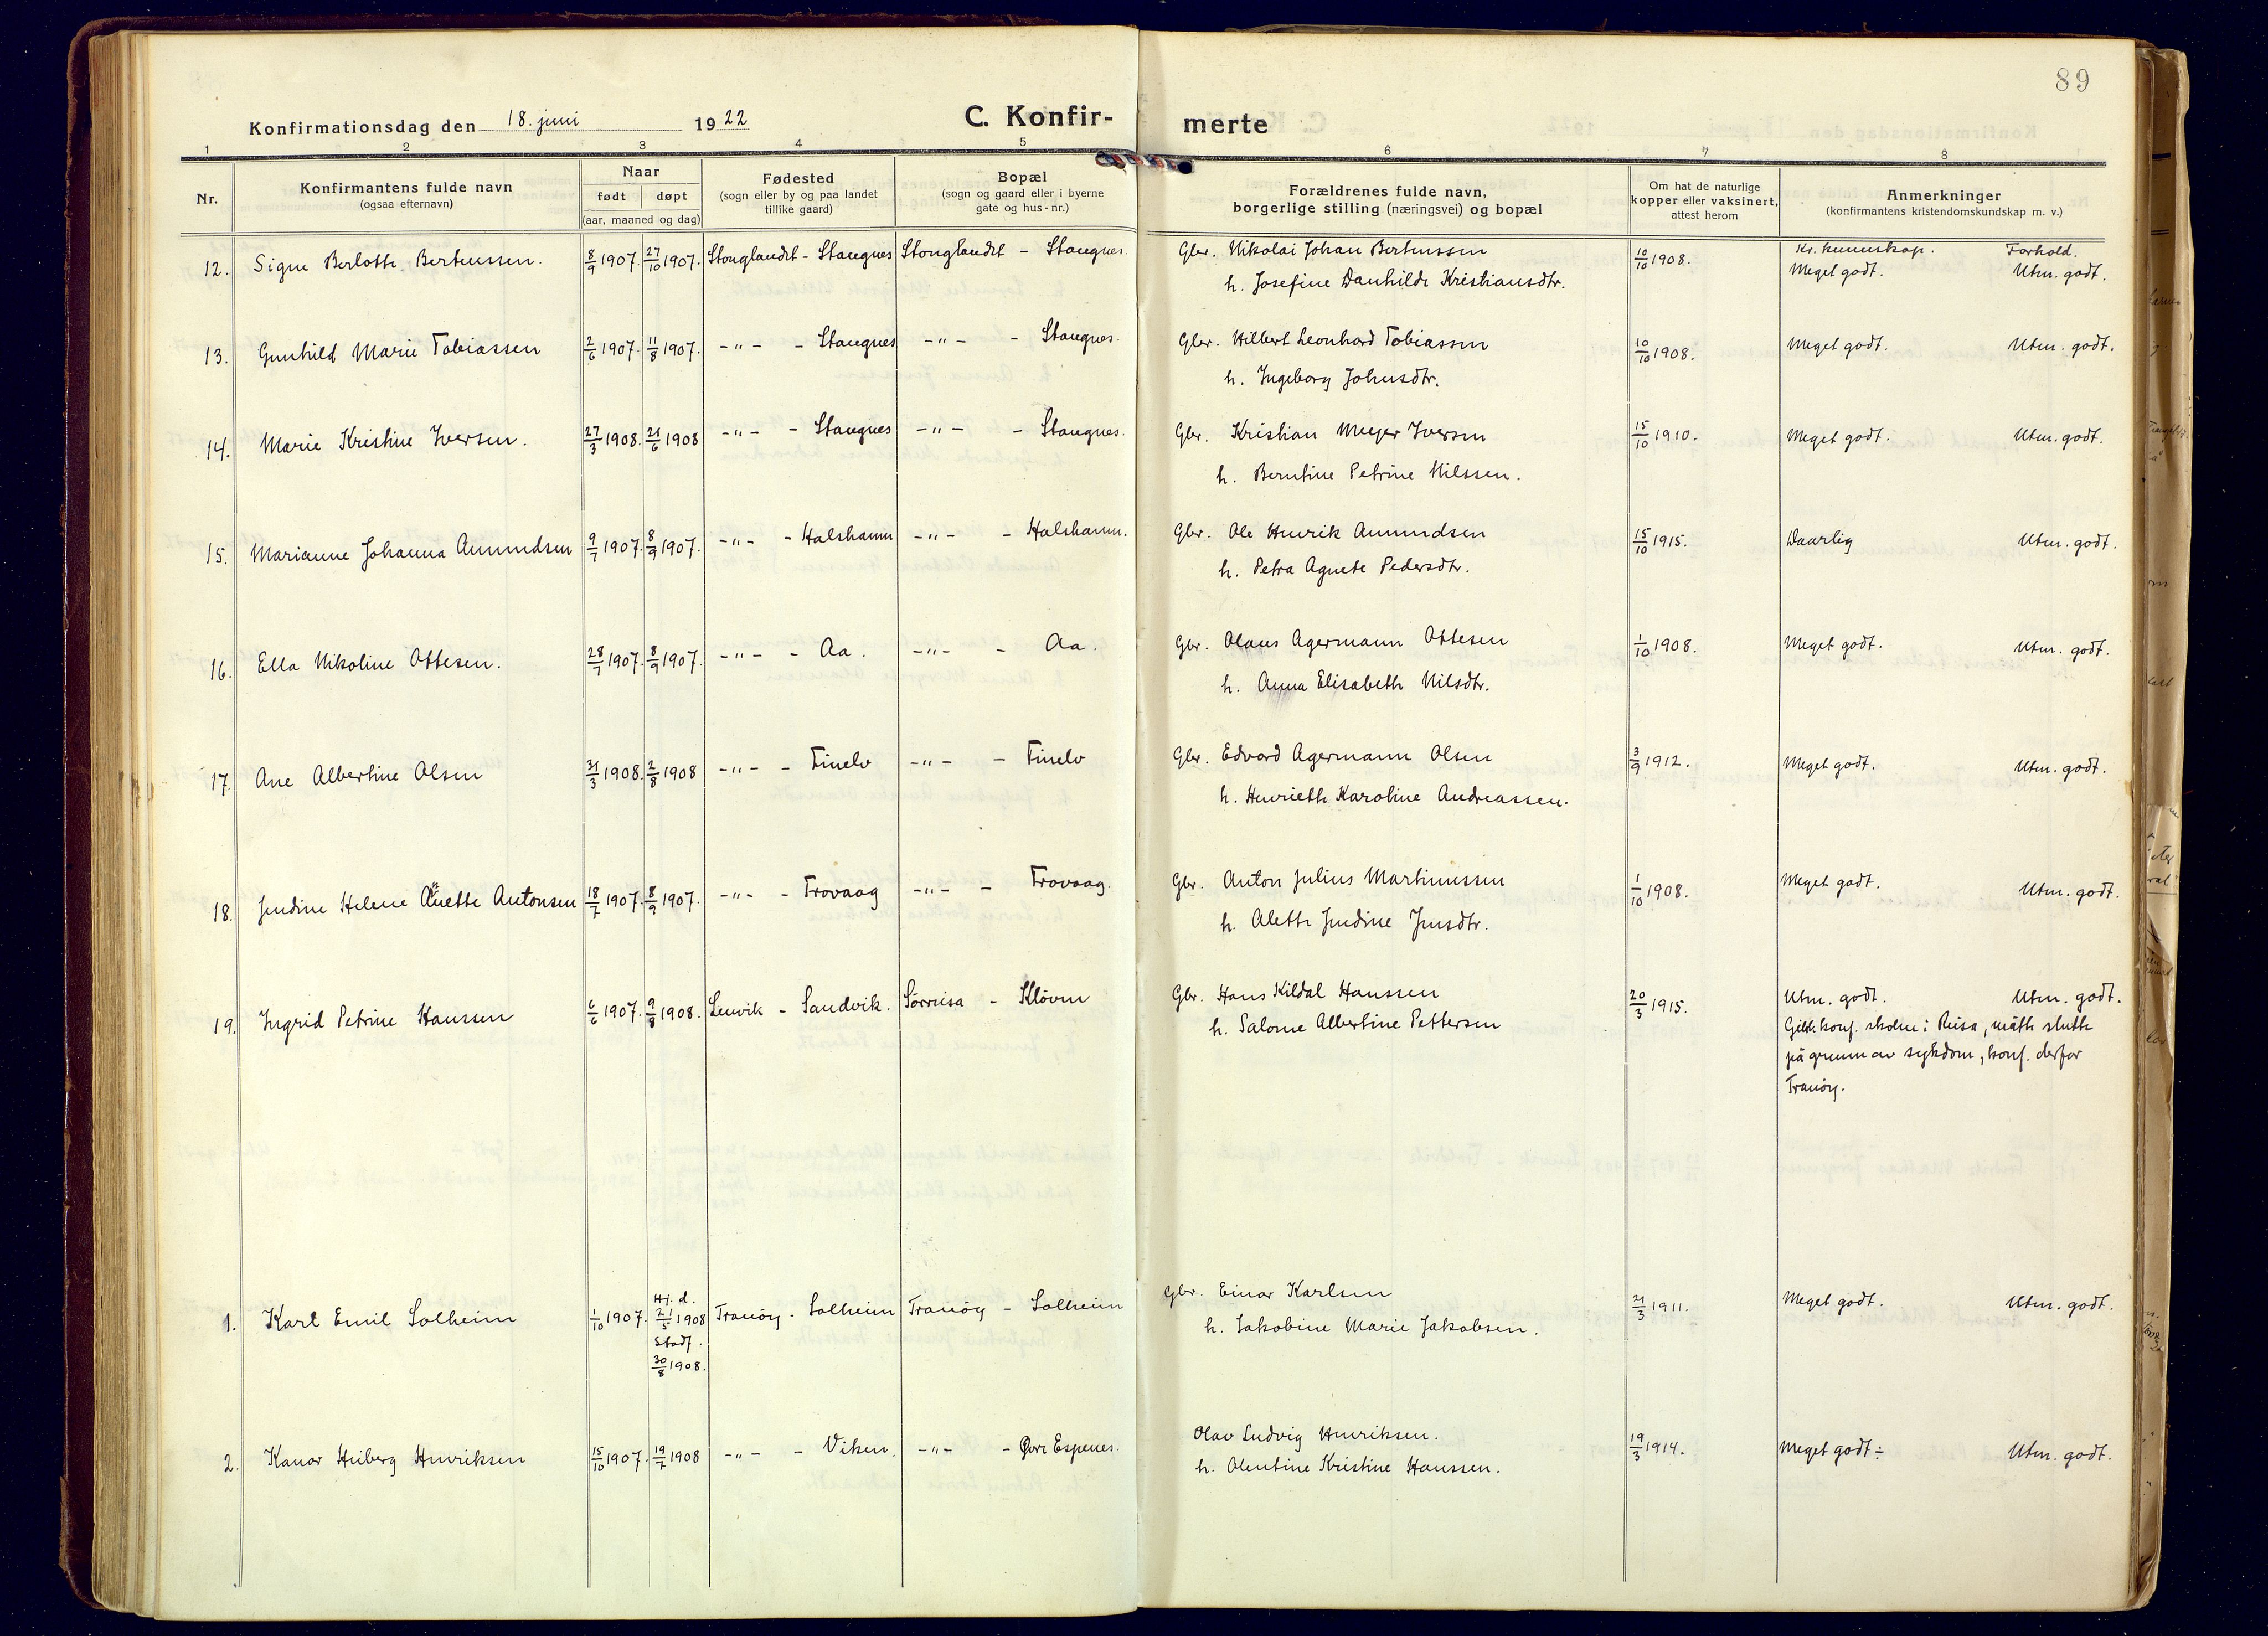 89
Konfirmationsdag den 18. juni 1922
C. Konfir-merte
1 2 3 4 5 6 7 8
Nr.
Konfirmantens fulde navn
(ogsaa efternavn)
Naar
født døpt
(aar, maaned og dag)
Fødested
(sogn eller by og paa landet
tillike gaard)
Bopæl
(sogn og gaard eller i byerne
gate og hus-nr.)
Forældrenes fulde navn,
borgerlige stilling (næringsvei) og bopæl
Om hat de naturlige
kopper eller vaksinert,
attest herom
Anmerkninger
(konfirmantens kristendomskundskap m. v.)
Kr. kunnskap. Forhold.
12. Signe Berlotte Berteussen. 8/9 1907. 27/10 1907. Stonglandet - Stangnes Stonglandet - Stangnes. Gbr. Nikolai Johan Berteussen 10/10 1908. Meget godt. Utm. godt.
h. Josefine Danhilde Kristiansdtr.
13. Gunhild Marie Tobiassen 2/6 1907. 11/8 1907. -"- - Stangnes -"- - Stangnes. Gbr. Hilbert Leonhard Tobiassen 10/10 1908. Meget godt. Utm. godt.
h. Ingeborg Johnsdtr.
14. Marie Kristine Iversen. 27/3 1908. 21/6 1908 -"- - Stangnes -"- - Stangnes. Gbr. Kristian Meyer Iversen 15/10 1910. Meget godt. Utm. godt.
h. Berntine Petrine Nilssen.
15. Marianne Johanna Amundsen 9/7 1907. 8/9 1907. -"- - Halshamn -"- - Halshamn. Gbr. Ole Henrik Amundsen 15/10 1915. Daarlig Utm. godt.
h. Petra Agnete Pedersdtr.
16. Ella Nikoline Ottesen. 28/7 1907. 8/9 1907. -"- - Aa. -"- - Aa. Gbr. Olaus Agermann Ottesen 1/10 1908. Meget godt. Utm. godt.
h. Anna Elisabeth Nilsdtr.
17. Ane Albertine Olsen 31/3 1908. 2/8 1908 -"- - Finelv -"- - Finelv Gbr. Edvard Agermann Olsen 3/9 1912. Meget godt. Utm. godt.
h. Henriette Karoline Andreassen.
18. Jendine Helene Anette Antonsen 18/7 1907. 8/9 1907. -"- - Trovaag -"- - Trovaag. Gbr. Anton Julius Martinussen 1/10 1908. Meget godt. Utm. godt.
h. Alette Jendine Jensdtr.
19. Ingrid Petrine Hanssen 6/6 1907. 9/8 1908. Lenvik - Sandvik. Sørreisa - Kløven Gbr. Hans Kildal Hanssen 20/3 1915. Utm. godt. Utm. godt.
h. Salome Albertine Pettersen
Gikk konf. skolen i Reisa, måtte slutte
på grunn av sykdom, konf. derfor
Tranöy.
1. Karl Emil Solheim 1/10 1907. Hj. d. 21/5 1908 Stadf. 30/8 1908. Tranöy - Solheim Tranöy - Solheim Gbr. Einar Karlsen 21/3 1911. Meget godt. Utm. godt.
h. Jakobine Marie Jakobsen.
2. Kanar Heiberg Henriksen 15/10 1907. 19/7 1908 -"- - Viken. -"- - Øvre Espenes. Olav Ludvig Henriksen. 19/3 1914. Meget godt ÷ Utm. godt.
h. Olentine Kristine Hanssen.